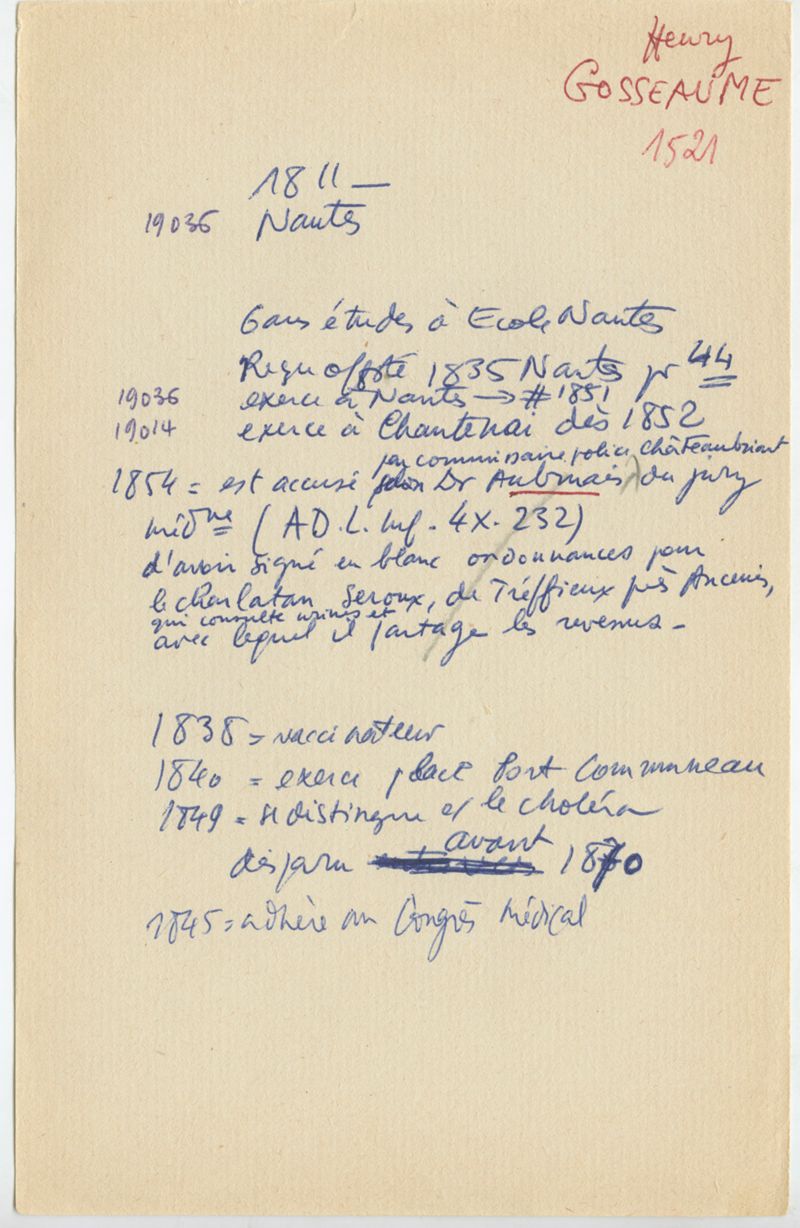 Henry
GOSSEAUME
1521
1811 —
19036 Nantes
6 ans études à Ecole Nantes
Reçu offsté 1835 Nantes pr 44
19036 exerce à Nantes → # 1851
19014 exerce à Chantenai dès 1852
par commissaire police Châteaubriant
1854 = est accusé selon Dr Aubinais du jury
médne (A D. L. Inf. 4X. 232)
d'avoir signé en blanc ordonnances pour
le charlatan Seroux, de Tréffieux près Ancenis,
qui consulte urines et
avec lequel il partage les revenus -
1838 = vaccinateur
1840 = exerce place Port Communeau
1849 = se distingue le choléra
avant
disparu 1870
1845 = adhère au Congrès Médical